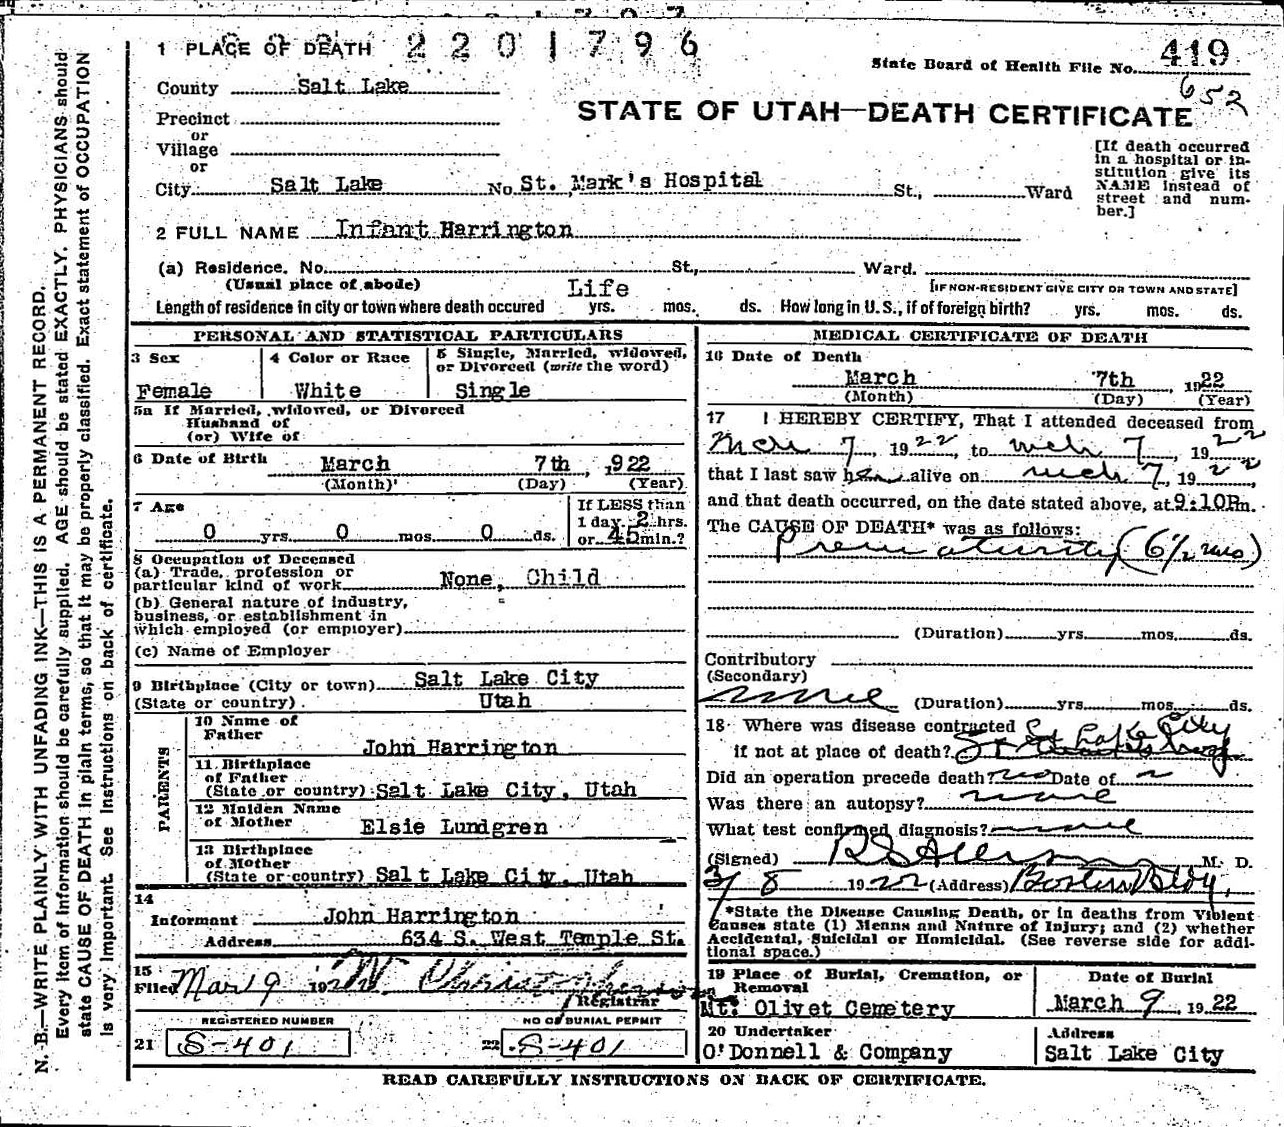 N. B.—WRITE PLAINLY WITH UNFADING INK—THIS IS A PERMANENT RECORD.
Every item of information should be carefully supplied. AGE should be stated EXACTLY. PHYSICIANS should
state CAUSE OF DEATH in plain terms, so that it may be properly classified. Exact statement of OCCUPATION
is very important. See Instructions on back of certificate.
1 PLACE OF DEATH 2201796
419
State Board of Health File No.
652
County Salt Lake
STATE OF UTAH—DEATH CERTIFICATE
Precinct
or
Village
or
City Salt Lake No. St. Mark's Hospital St., Ward
[If death occurred
in a hospital or in-
stitution give its
NAME instead of
street and num-
ber.]
2 FULL NAME Infant Harrington
(a) Residence. No. St., Ward.
(Usual place of abode)
[IF NON-RESIDENT GIVE CITY OR TOWN AND STATE]
Life
Length of residence in city or town where death occured yrs. mos. ds. How long in U.S., if of foreign birth? yrs. mos. ds.
PERSONAL AND STATISTICAL PARTICULARS
3 Sex
Female
4 Color or Race
White
5 Single, Married, widowed,
or Divorced (write the word)
Single
5a If Married, widowed, or Divorced
Husband of
(or) Wife of
6 Date of Birth March 7th, 1922
(Month) (Day) (Year)
7 Age
0 yrs. 0 mos. 0 ds.
If LESS than
1 day 2 hrs.
or 45 min.?
8 Occupation of Deceased
(a) Trade, profession or
particular kind of work None, Child
(b) General nature of industry,
business, or establishment in
which employed (or employer)
(c) Name of Employer
9 Birthplace (City or town) Salt Lake City
(State or country) Utah
PARENTS
10 Name of
Father
John Harrington
11 Birthplace
of Father
(State or country) Salt Lake City, Utah
12 Maiden Name
of Mother Elsie Lundgren
13 Birthplace
of Mother
(State or country) Salt Lake City, Utah
14
Informant John Harrington
Address 634 S. West Temple St.
15
Filed Mar 9 1922 Christopherson
Registrar
REGISTERED NUMBER
21 S-401
NO OF BURIAL PERMIT
22 S-401
MEDICAL CERTIFICATE OF DEATH
16 Date of Death
March 7th, 1922
(Month) (Day) (Year)
17 I HEREBY CERTIFY, That I attended deceased from
Mch 7, 1922, to Mch 7, 1922
that I last saw her alive on Mch 7, 1922,
and that death occurred, on the date stated above, at 9:10Pm.
The CAUSE OF DEATH* was as follows:
Prematurity (6½ mos)
(Duration) yrs. mos. ds.
Contributory
(Secondary)
none (Duration) yrs. mos. ds.
18 Where was disease contracted St Lake City
if not at place of death?
Did an operation precede death? no Date of
Was there an autopsy? none
What test confirmed diagnosis? none
(Signed) M. D.
3/8 1922 (Address) Boston Bldg.
*State the Disease Causing Death, or in deaths from Violent
Causes state (1) Means and Nature of Injury; and (2) whether
Accidental, Suicidal or Homicidal. (See reverse side for addi-
tional space.)
19 Place of Burial, Cremation, or
Removal
Mt. Olivet Cemetery
Date of Burial
March 9, 1922
20 Undertaker
O'Donnell & Company
Address
Salt Lake City
READ CAREFULLY INSTRUCTIONS ON BACK OF CERTIFICATE.